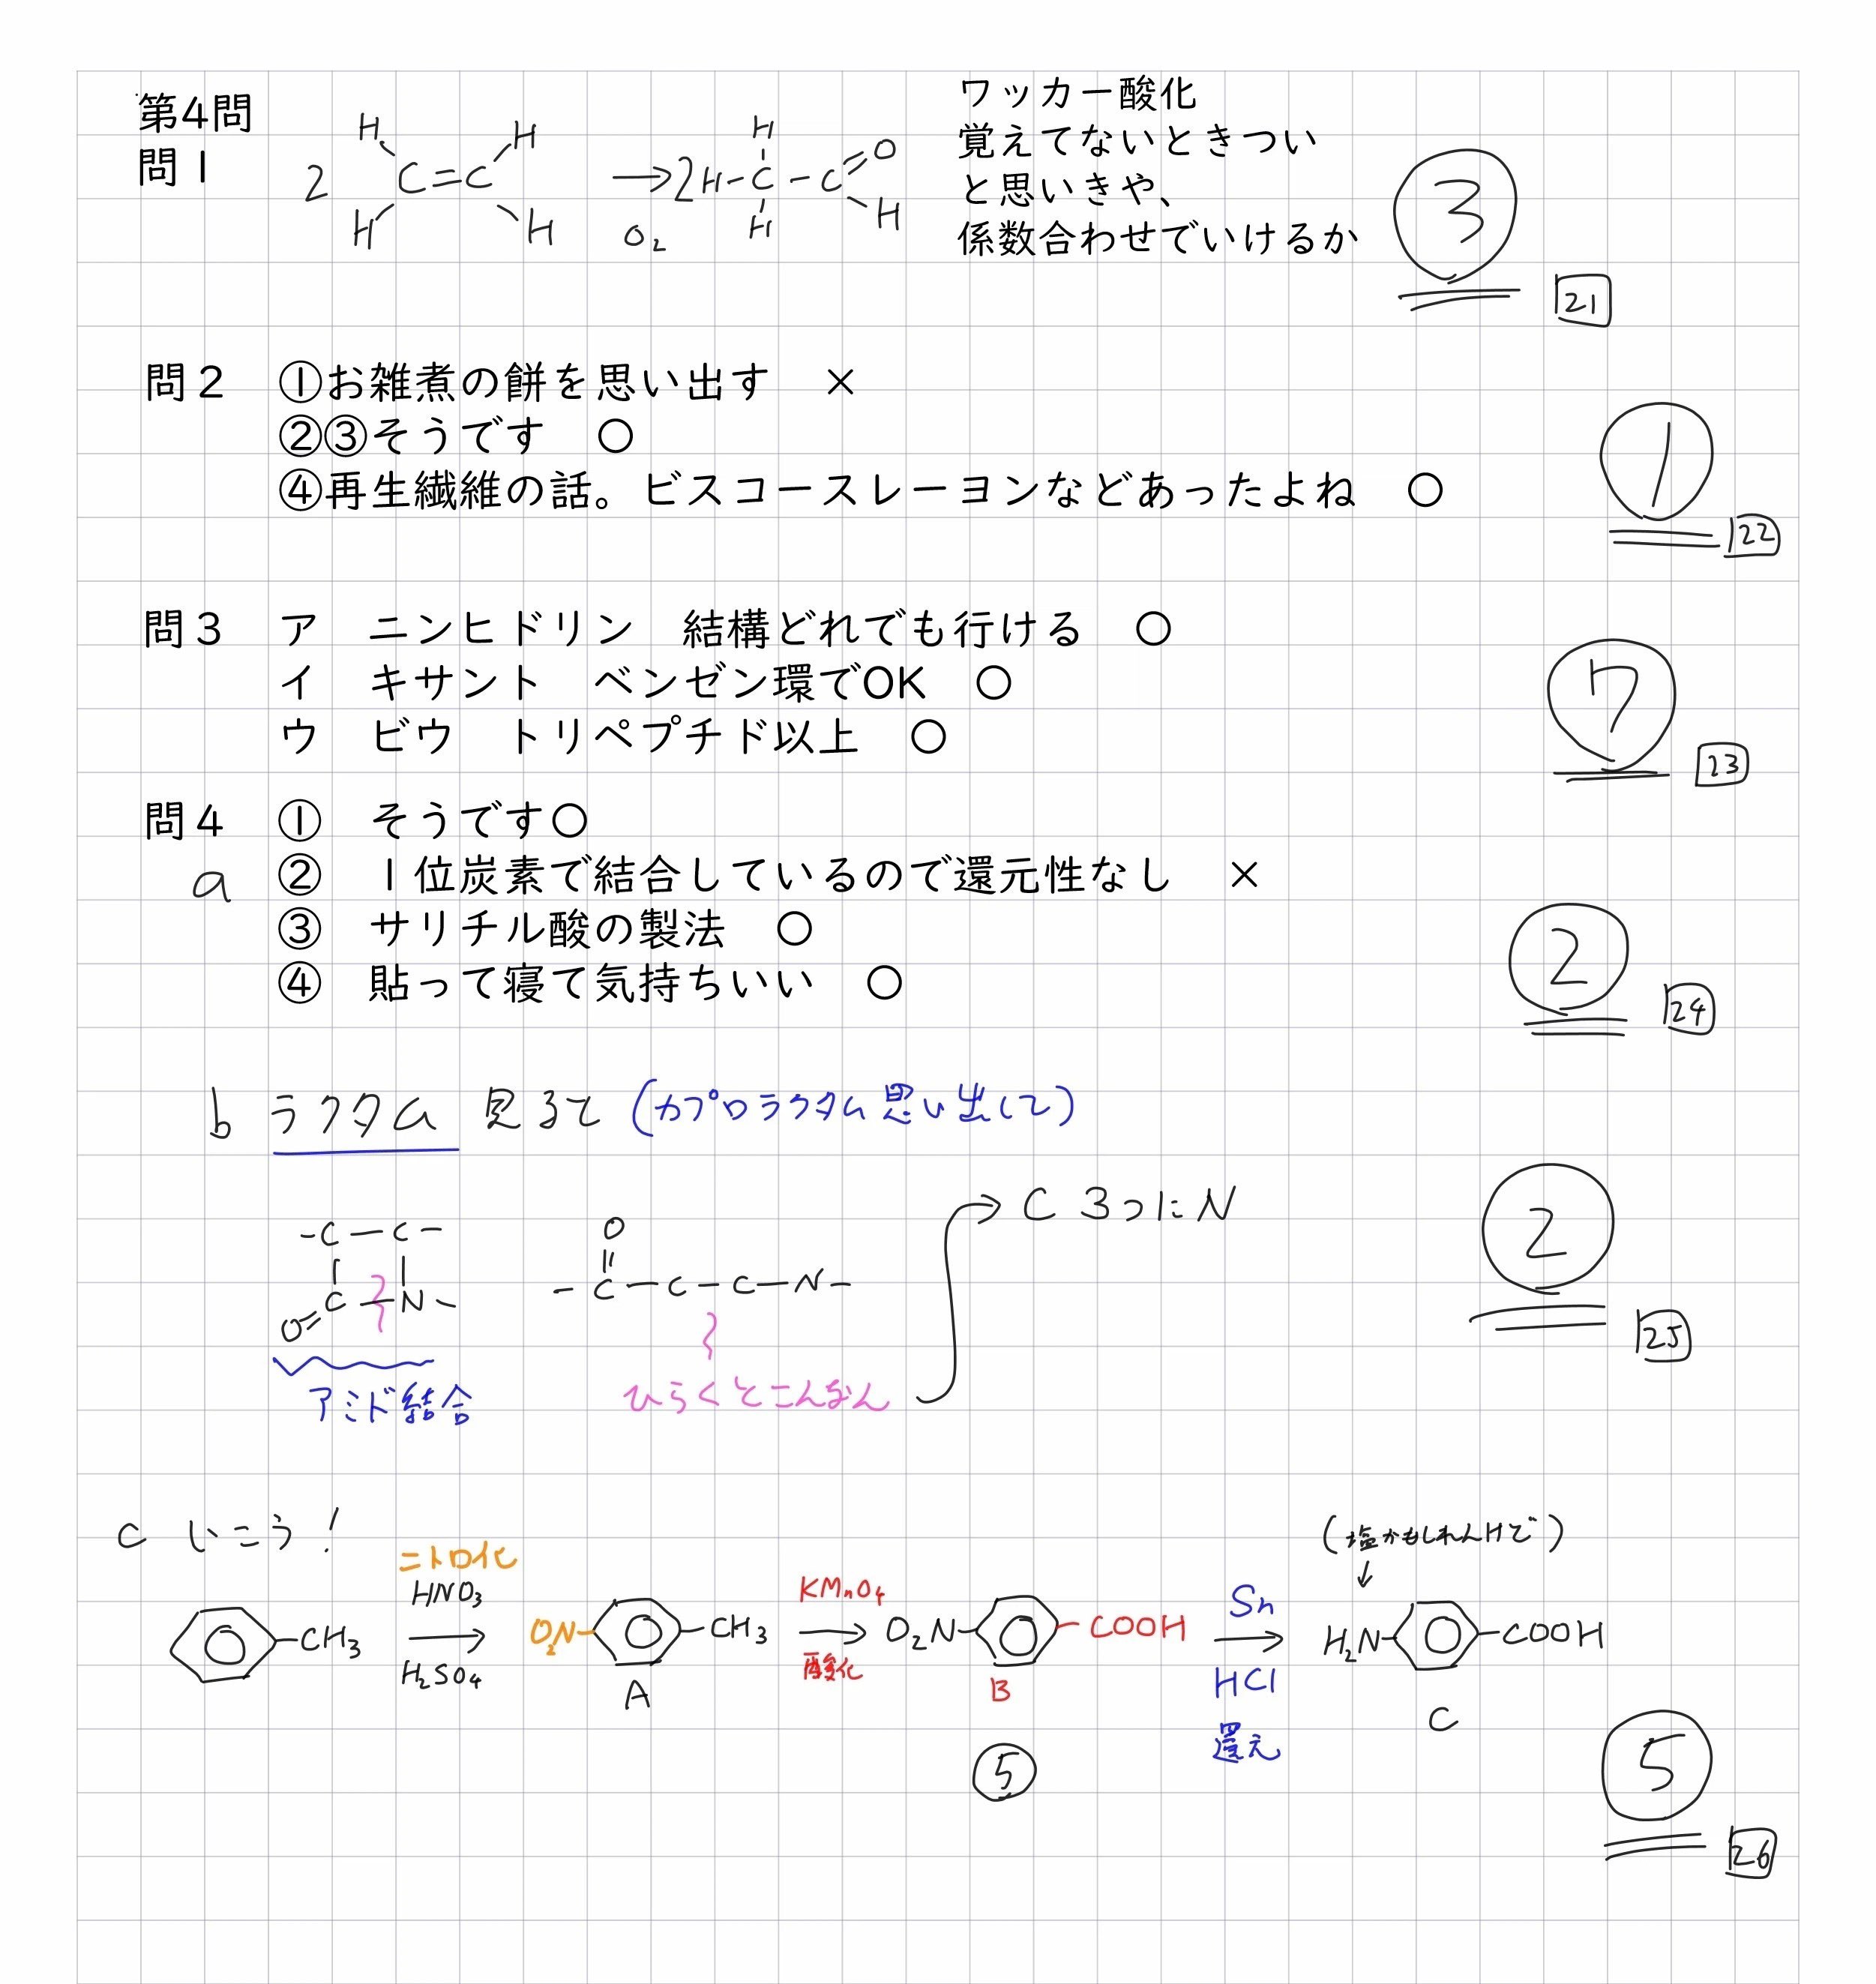 第4問
問1
2 H H C=C H H → O₂ 2 H-C-C H H O H
ワッカー酸化
覚えてないときつい
と思いきや、
係数合わせでいけるか
③
21
問2 ①お雑煮の餅を思い出す ×
②③そうです ○
④再生繊維の話。ビスコースレーヨンなどあったよね ○
①
22
問3 ア ニンヒドリン 結構どれでも行ける ○
イ キサント ベンゼン環でOK ○
ウ ビウ トリペプチド以上 ○
⑦
23
問4 ① そうです○
a ② 1位炭素で結合しているので還元性なし ×
③ サリチル酸の製法 ○
④ 貼って寝て気持ちいい ○
②
24
b ラクタム 見るて (カプロラクタム思い出して)
-C-C-
O=C-N-
アミド結合
O
-C-C-C-N-
ひらくとこんなん
→ C 3つにN
②
25
c いこう!
-CH₃
ニトロ化
HNO₃
→
H₂SO₄
O₂N- -CH₃
A
KMnO₄
→
酸化
O₂N- -COOH
B
⑤
Sn
→
HCl
還元
(塩かもしれんけど)
↓
H₂N- -COOH
C
⑤
26